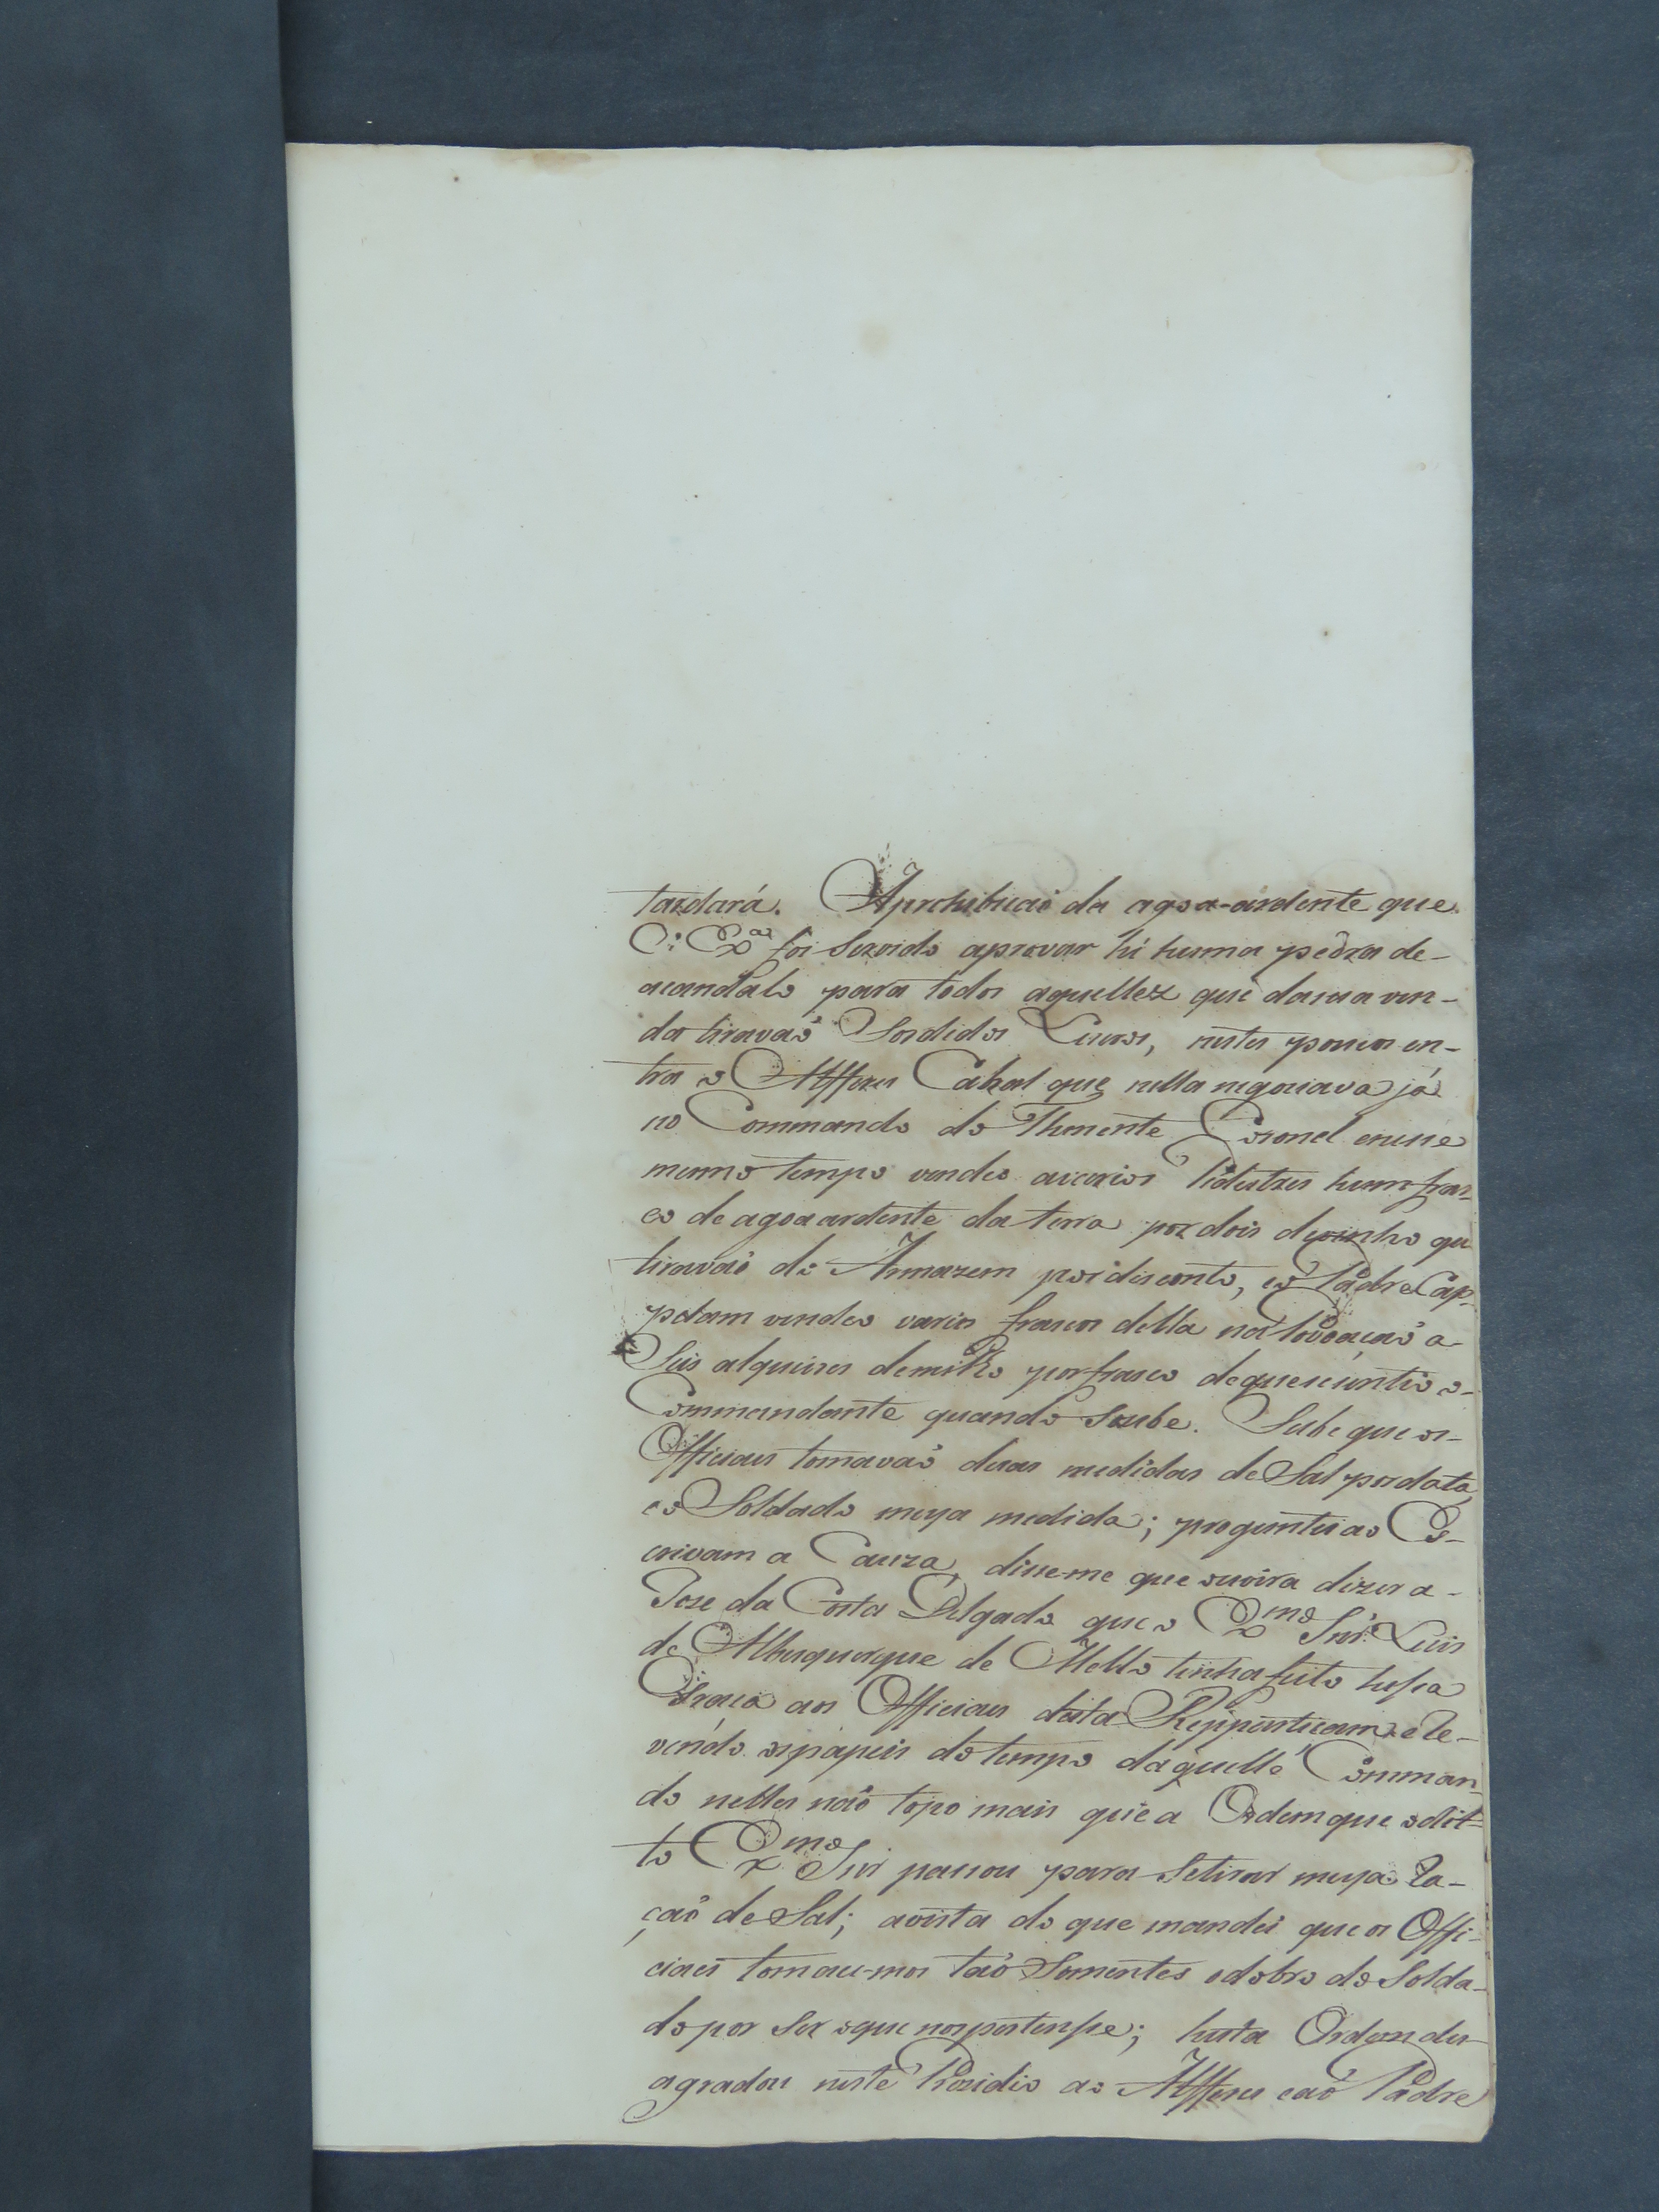 tardará. Aprohibicaõ da agoa-ardente que
V. Exª foi Servido aprovar hé huma pedra de-
acandalo para todos aquellez que dasua ven-
da tiravaõ Sordidos Lucros, nestes poucos en-
tra o Alfferes Cabral que nella negociava já
no Commando do Thenente Coronel enesse
mesmo tempo vendeo avarios Pedestres hum fras-
co de agoa ardente da terra por dois dezinho que
tiravaõ do Armazem por disconto, eo Padre Cap-
pelam vendeo varios frascos della na Povoaçaõ a-
Seis alqueires demilho por frasco dequesecintio o-
Commandante quando soube. Sube que os-
Officiaes tomavaõ duas medidas de Sal pordata,
eo Soldado meya medida; proguntei ao Es-
crivam a Cauza, disse-me que ouvira dizer a-
Joze da Costa Delgado que o Exmo Snr. Luis
de Albuquerque de Mello tinha feito hessa
Graça aos Officiaes desta Reppartiçam, e Re-
vendo ospapeis do tempo daquelle Comman
do nelles naõ topo mais que a Ordem que odit-
to Exmo Snr passou para Setirar meya Ra-
çaõ de Sal; avista do que mandei que os Offi-
ciaes tomace-mos taõ Somentes odobro do Solda-
do por Ser oque nospertensse; hesta Ordem des-
agradou neste Prezidio ao Alfferes eaõ Padre